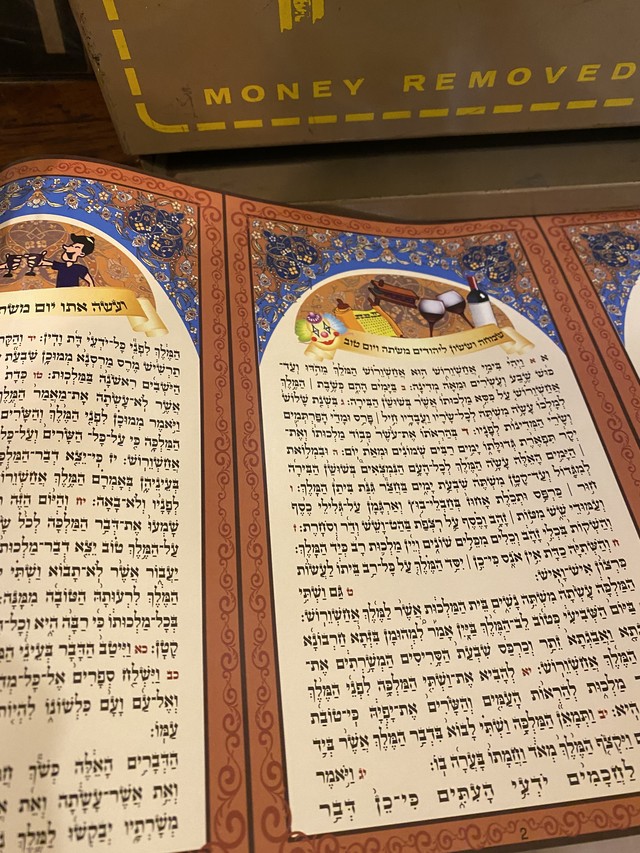 MONEY REMOVED
שמחה וששון ליהודים משתה ויום טוב
א א וַיְהִי בִּימֵי אֲחַשְׁוֵרוֹשׁ הוּא אֲחַשְׁוֵרוֹשׁ הַמֹּלֵךְ מֵהֹדּוּ וְעַד־
כּוּשׁ שֶׁבַע וְעֶשְׂרִים וּמֵאָה מְדִינָה: ב בַּיָּמִים הָהֵם כְּשֶׁבֶת | הַמֶּלֶךְ
אֲחַשְׁוֵרוֹשׁ עַל כִּסֵּא מַלְכוּתוֹ אֲשֶׁר בְּשׁוּשַׁן הַבִּירָה: ג בִּשְׁנַת שָׁלוֹשׁ
לְמָלְכוֹ עָשָׂה מִשְׁתֶּה לְכָל־שָׂרָיו וַעֲבָדָיו חֵיל | פָּרַס וּמָדַי הַפַּרְתְּמִים
וְשָׂרֵי הַמְּדִינוֹת לְפָנָיו: ד בְּהַרְאֹתוֹ אֶת־עֹשֶׁר כְּבוֹד מַלְכוּתוֹ וְאֶת־
יְקָר תִּפְאֶרֶת גְּדוּלָּתוֹ יָמִים רַבִּים שְׁמוֹנִים וּמְאַת יוֹם: ה וּבִמְלוֹאת
| הַיָּמִים הָאֵלֶּה עָשָׂה הַמֶּלֶךְ לְכָל־הָעָם הַנִּמְצְאִים בְּשׁוּשַׁן הַבִּירָה
לְמִגָּדוֹל וְעַד־קָטָן מִשְׁתֶּה שִׁבְעַת יָמִים בַּחֲצַר גִּנַּת בִּיתַן הַמֶּלֶךְ:
חוּר | כַּרְפַּס וּתְכֵלֶת אָחוּז בְּחַבְלֵי־בוּץ וְאַרְגָּמָן עַל־גְּלִילֵי כֶסֶף
וְעַמּוּדֵי שֵׁשׁ מִטּוֹת | זָהָב וָכֶסֶף עַל רִצְפַת בַּהַט־וָשֵׁשׁ וְדַר וְסֹחָרֶת: ז
וְהַשְׁקוֹת בִּכְלֵי זָהָב וְכֵלִים מִכֵּלִים שׁוֹנִים וְיֵין מַלְכוּת רָב כְּיַד הַמֶּלֶךְ:
ח וְהַשְּׁתִיָּה כַדָּת אֵין אֹנֵס כִּי־כֵן | יִסַּד הַמֶּלֶךְ עַל כָּל־רַב בֵּיתוֹ לַעֲשׂוֹת
כִּרְצוֹן אִישׁ־וָאִישׁ:
ט גַּם וַשְׁתִּי
הַמַּלְכָּה עָשְׂתָה מִשְׁתֵּה נָשִׁים בֵּית הַמַּלְכוּת אֲשֶׁר לַמֶּלֶךְ אֲחַשְׁוֵרוֹשׁ:
בַּיּוֹם הַשְּׁבִיעִי כְּטוֹב לֵב־הַמֶּלֶךְ בַּיָּיִן אָמַר לִמְהוּמָן בִּזְּתָא חַרְבוֹנָא
וַאֲבַגְתָא זֵתַר וְכַרְכַּס שִׁבְעַת הַסָּרִיסִים הַמְשָׁרְתִים אֶת־
הַמֶּלֶךְ אֲחַשְׁוֵרוֹשׁ: יא לְהָבִיא אֶת־וַשְׁתִּי הַמַּלְכָּה לִפְנֵי הַמֶּלֶךְ
מַלְכוּת לְהַרְאוֹת הָעַמִּים וְהַשָּׂרִים אֶת־יָפְיָהּ כִּי־טוֹבַת
הִיא: יב וַתְּמָאֵן הַמַּלְכָּה וַשְׁתִּי לָבוֹא בִּדְבַר הַמֶּלֶךְ אֲשֶׁר בְּיַד
וַיִּקְצֹף הַמֶּלֶךְ מְאֹד וַחֲמָתוֹ בָּעֲרָה בוֹ:
יג וַיֹּאמֶר
לַחֲכָמִים יֹדְעֵי הָעִתִּים כִּי־כֵן דְּבַר
2
ועשה אתו יום משתה
הַמֶּלֶךְ לִפְנֵי כָּל־יֹדְעֵי דָּת וָדִין: יד וְהַקָּרֹב
תַרְשִׁישׁ מֶרֶס מַרְסְנָא מְמוּכָן שִׁבְעַת
הַיֹּשְׁבִים רִאשֹׁנָה בַּמַּלְכוּת: טו כְּדָת
אֲשֶׁר לֹא־עָשְׂתָה אֶת־מַאֲמַר
וַיֹּאמֶר מְמוּכָן לִפְנֵי הַמֶּלֶךְ וְהַשָּׂרִים
הַמַּלְכָּה כִּי עַל־כָּל־הַשָּׂרִים וְעַל־כָּל
אֲחַשְׁוֵרוֹשׁ: יז כִּי־יֵצֵא דְבַר־הַמַּלְכָּה
בְּעֵינֵיהֶן בְּאָמְרָם הַמֶּלֶךְ אֲחַשְׁוֵרוֹשׁ
לְפָנָיו וְלֹא־בָאָה: יח וְהַיּוֹם הַזֶּה
שָׁמְעוּ אֶת־דְּבַר הַמַּלְכָּה לְכֹל
עַל־הַמֶּלֶךְ טוֹב יֵצֵא דְבַר־מַלְכוּת
יַעֲבוֹר אֲשֶׁר לֹא־תָבוֹא וַשְׁתִּי
הַמֶּלֶךְ לִרְעוּתָהּ הַטּוֹבָה מִמֶּנָּה:
בְּכָל־מַלְכוּתוֹ כִּי רַבָּה הִיא וְכָל
קָטָן: כא וַיִּיטַב הַדָּבָר בְּעֵינֵי
כב וַיִּשְׁלַח סְפָרִים אֶל־כָּל
וְאֶל־עַם וָעָם כִּלְשׁוֹנוֹ לִהְיוֹת
עַמּוֹ:
הַדְּבָרִים הָאֵלֶּה כְּשֹׁךְ
וְאֵת אֲשֶׁר־עָשָׂתָה וְאֵת
מְשָׁרְתָיו יְבַקְשׁוּ לַמֶּלֶךְ